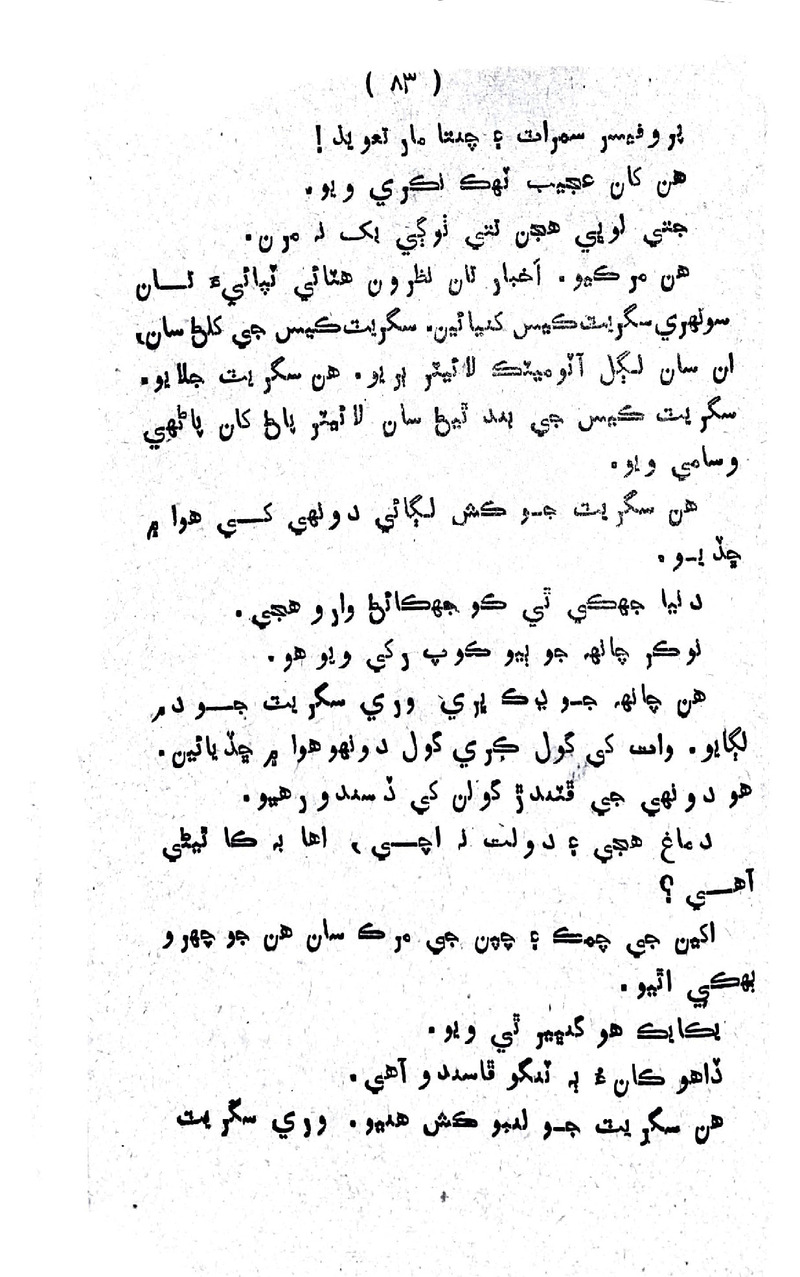 ( ۸۳ )
پروفيسر سمرات ۽ چنتا مار تعويذ!
هن کان عجيب ٽهڪ نڪري ويو.
جتي لوڀي هجن تتي ٺوڳي بک نہ مرن.
هن مرڪيو. اَخبار تان نظرون هٽائي ٽپائيءَ تـــان
سونهري سگريٽ‌ڪيس کنيائين. سگريٽ‌ڪيس جي کلڻ سان،
ان سان لڳل آٽوميٽڪ لائيٽر ٻريو. هن سگريٽ جلايو.
سگريٽ ڪيس جي بند ٿيڻ سان لائيٽر پاڻ کان پاڻهي
وسامي ويو.
هن سگريٽ جـو ڪش لڳائي دونهي کــي هوا ۾
ڇڏيـو.
دنيا جهڪي ٿي ڪو جهڪائڻ وارو هجي.
نوڪر چانهہ جو ٻيو ڪوپ رکي ويو هو.
هن چانهہ جـو ڍڪ ڀري وري سگريٽ جـــو دم
لڳايو. وات کي گول ڪري گول دونهو هوا ۾ ڇڏيائين.
هو دونهي جي ڦٽندڙ گولن کي ڏسندو رهيو.
دماغ هجي ۽ دولت نہ اچــي، اها بہ ڪا ٿيڻي
آهــي؟
اکين جي چمڪ ۽ چپن جي مرڪ سان هن جو چهرو
ٻهڪي اٿيو.
يڪايڪ هو گنڀير ٿي ويو.
ڏاهو ڪانءُ ٻہ ٽنگو ڦاسندو آهي.
هن سگريٽ جـو لنبو ڪش هنيو. وري سگريٽ